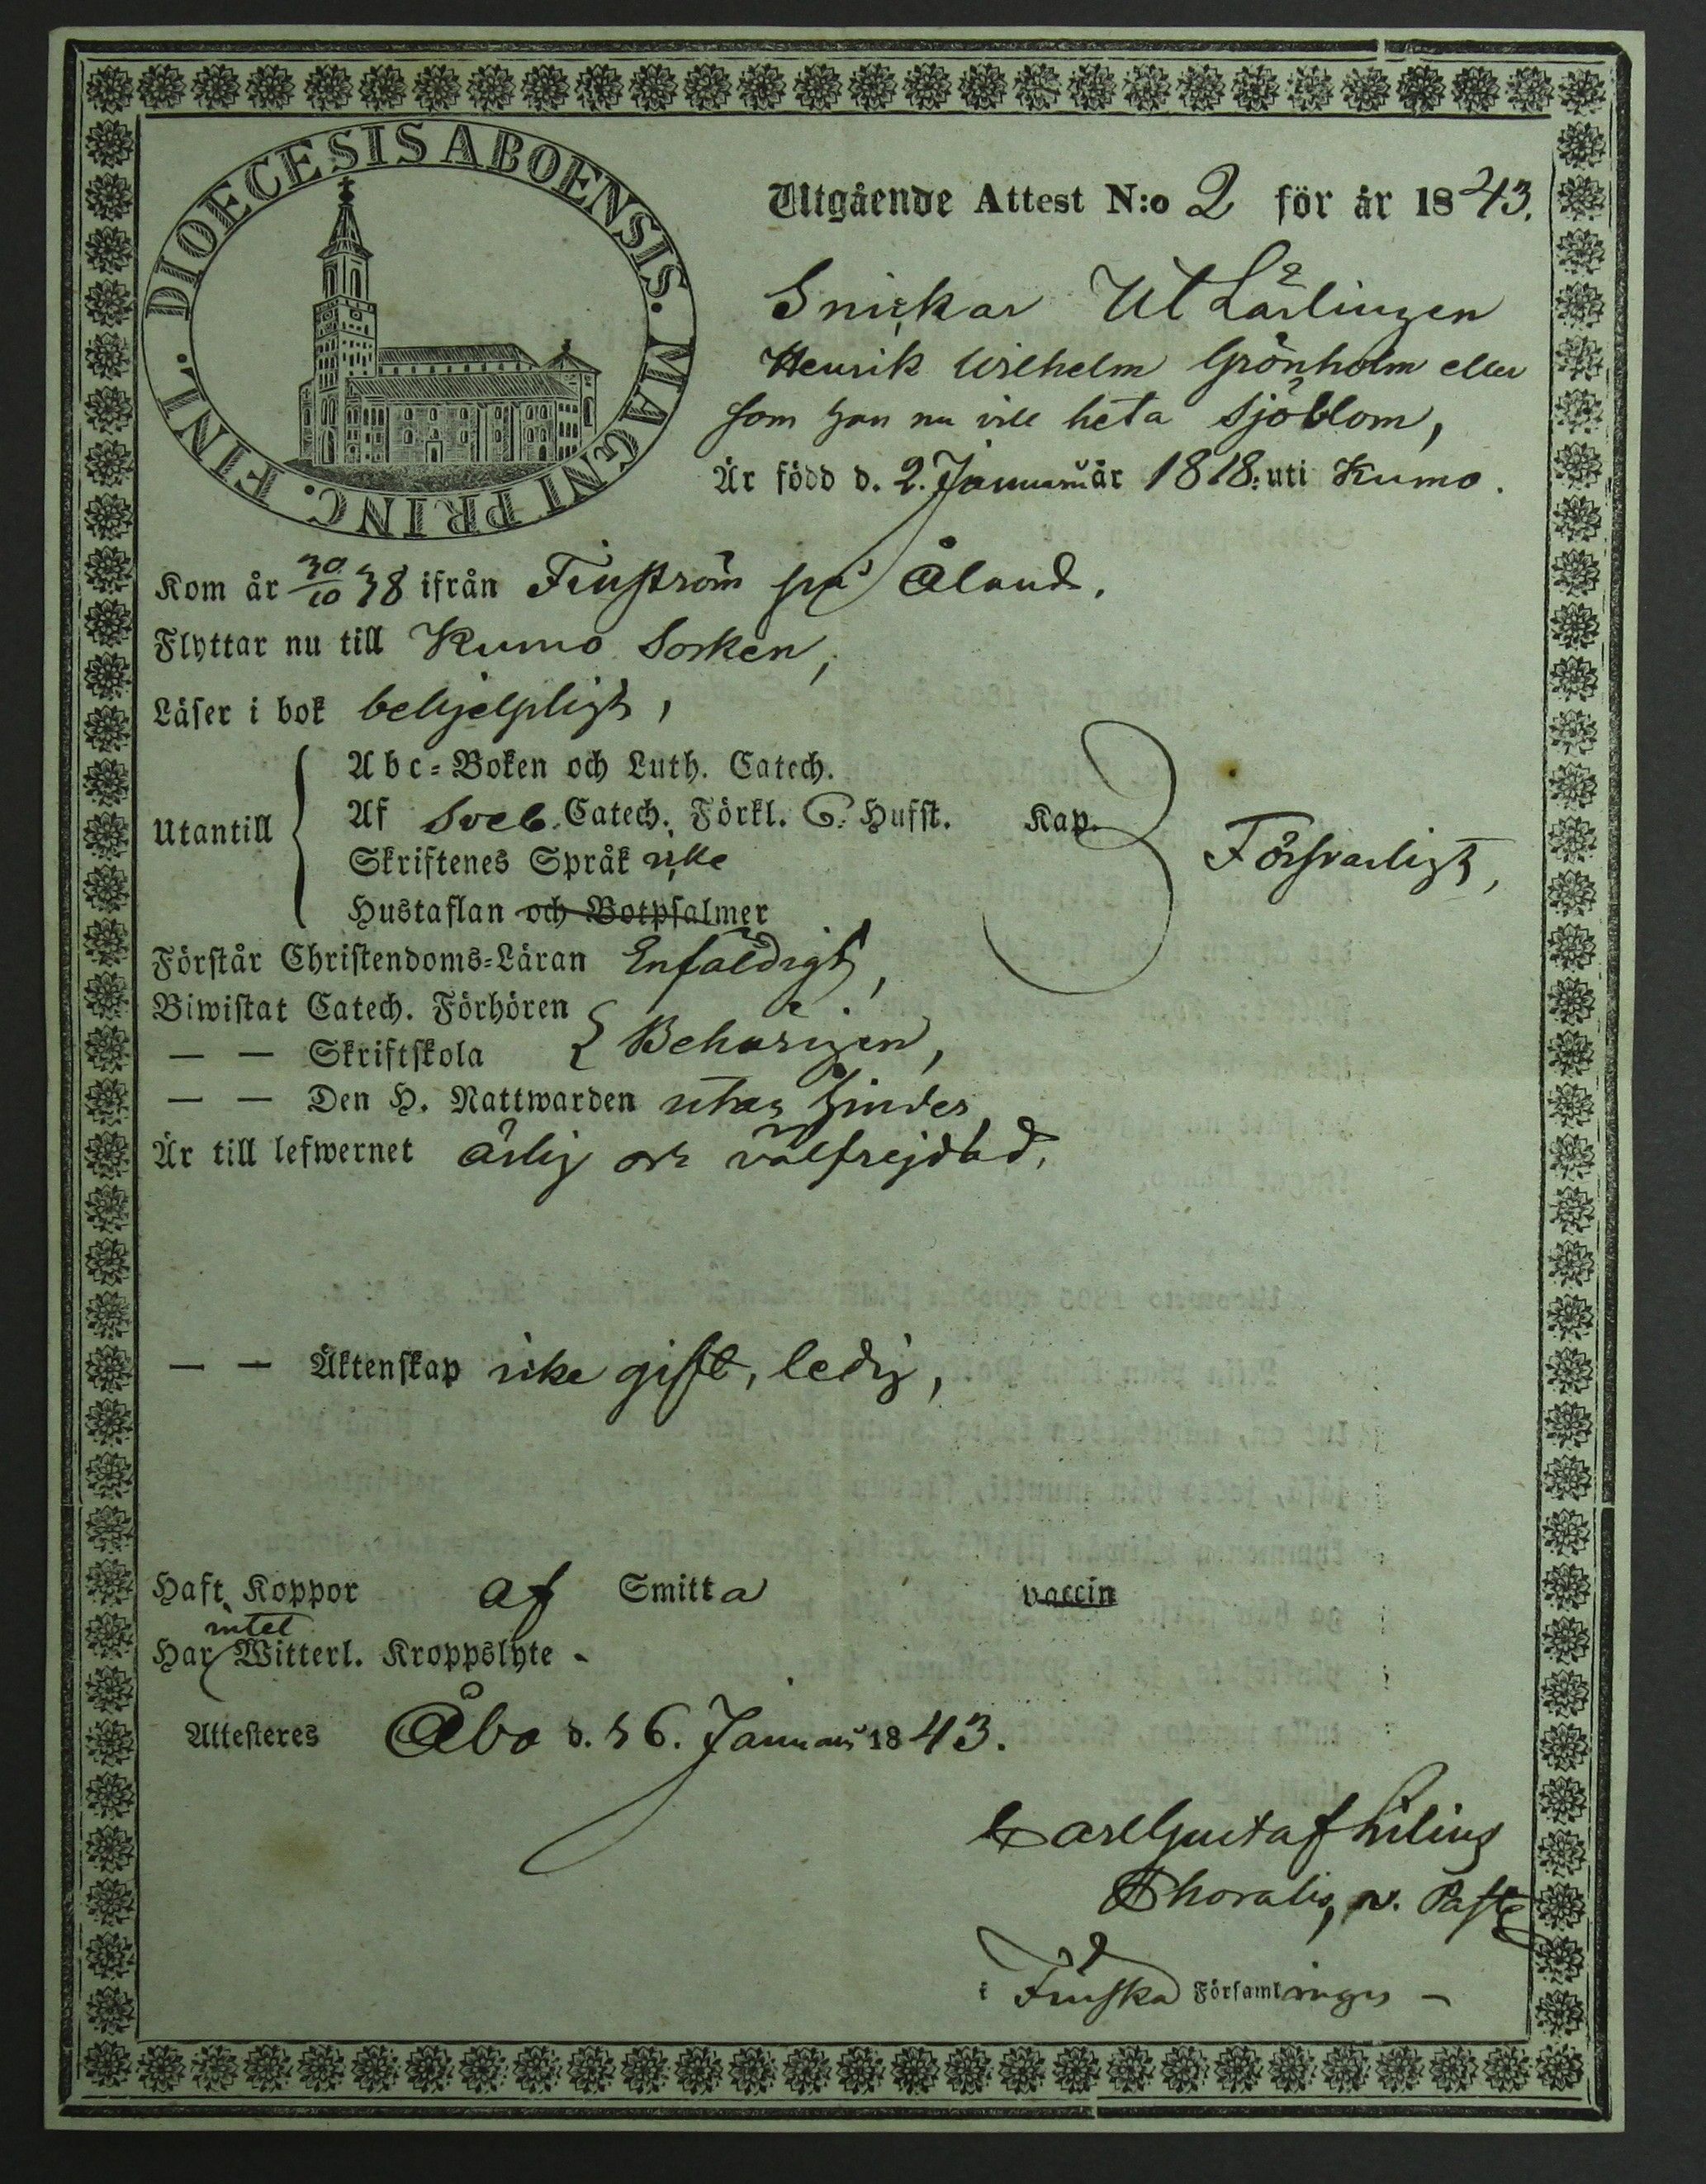 DIOECESIS ABOENSIS. MAGNI PRINC. FINL.
Utgående Attest N:o 2 för år 1843.
Snickar Ut Lärlingen
Henrik Wilhelm Grönholm eller
som han nu vill heta Sjöblom,
Är född d. 2. Januarii år 1818. uti Kumo.
Kom år 30/10 38 ifrån Finström på Åland.
Flyttar nu till Kumo Socken,
Läser i bok behjelpligt,
Utantill
Abc-Boken och Luth. Catech.
Af Sveb. Catech. Förkl. 6. Hufst. Kap.
Skriftenes Språk icke
Hustaflan och Botpsalmer
Försvarligt,
Förstår Christendoms-Läran Enfäldigt,
Biwistat Catech. Förhören
— — Skriftskola Behörigen,
— — Den H. Nattwarden utan hinder
Är till lefwernet ärlig och välfrejdad,
— — Äktenskap icke gift, ledig,
Haft Koppor af Smitta vaccin
Har intet Witterl. Kroppslyte -
Attesteres Åbo d. 16. Januarii 1843.
Carl Gustaf Lilius
Choralis, v. Past.
i Finska Församlingen -